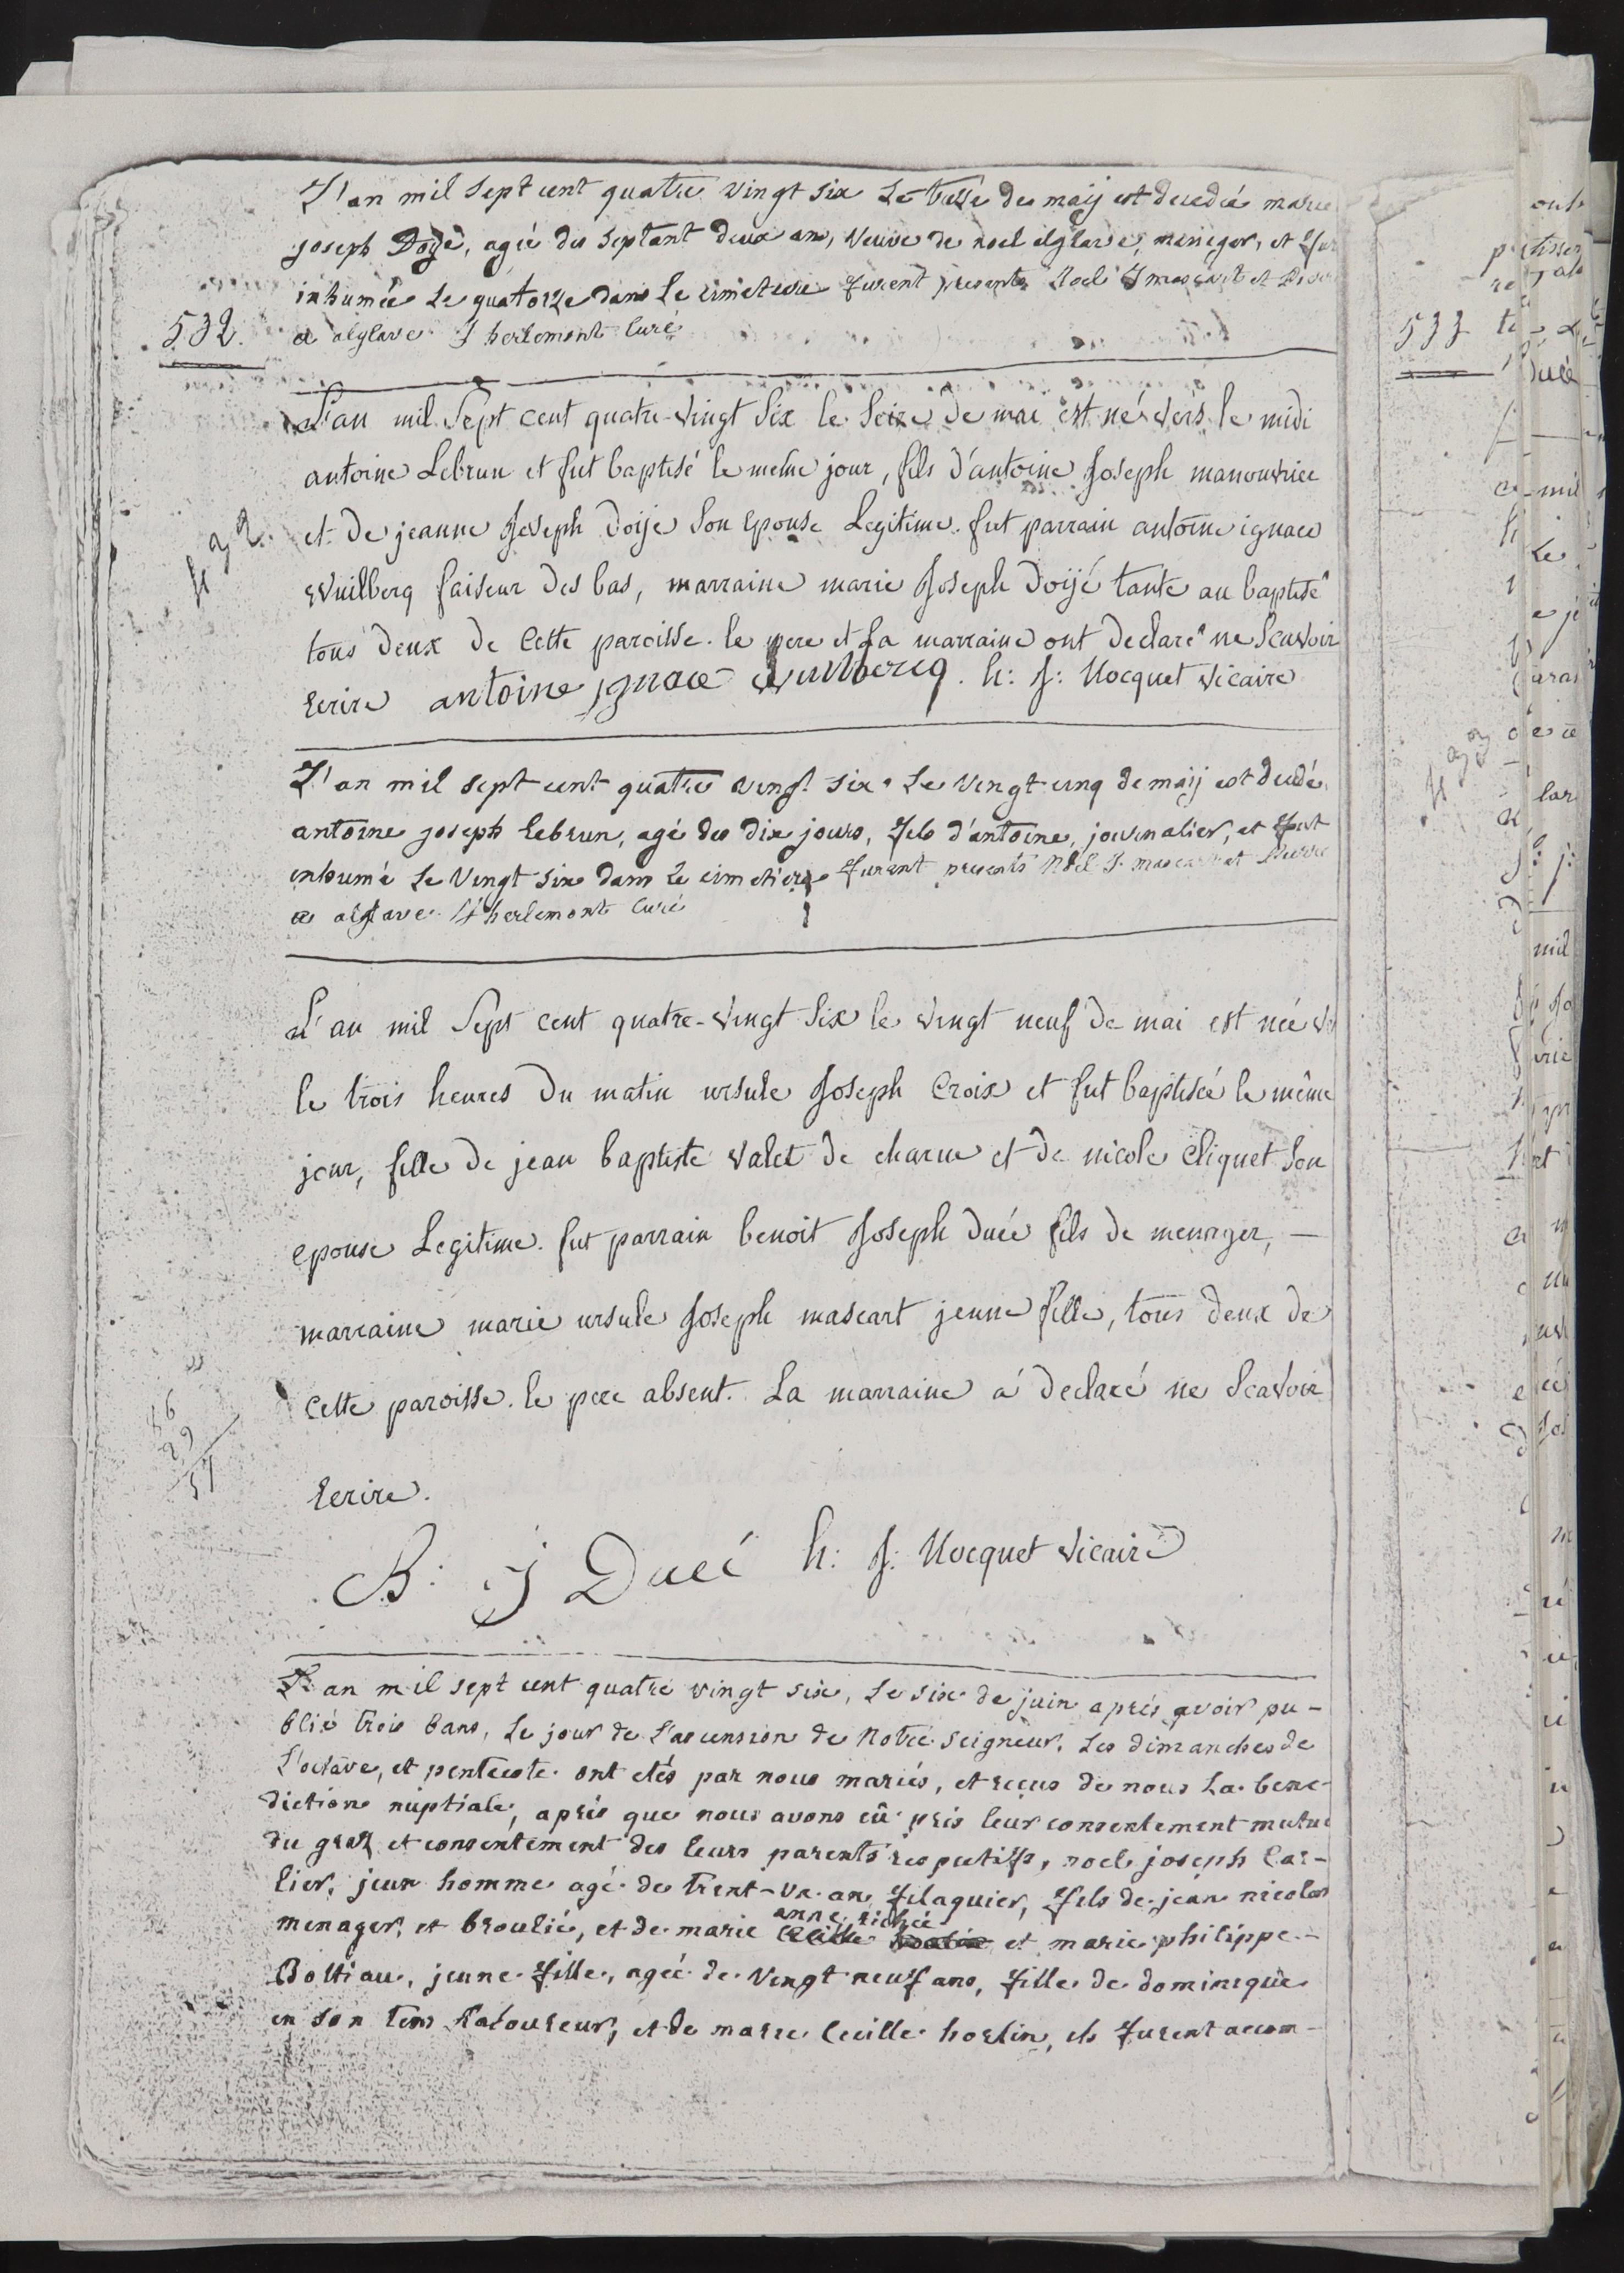 L'an mil sept cent quatre vingt six Le treise des maij est decedée marie
joseph Doijé, agée des septant deux ans, veuve de noel alglave, meniger, et fut
inhumée Le quatorze dans Le cimetiere furent presents Noel J mascart et
a alglave J herlemont Curé
532.
L'an mil Sept cent quatre-vingt Six le Seize de mai est né vers le midi
antoine Lebrun et fut baptisé le meme jour, fils d'antoine Joseph manouvrier
et de jeanne Joseph doije Son Epouse Legitime. fut parrain antoine ignace
Wuilbercq faiseur des bas, marraine marie Joseph Doijé tante au baptisé
tous deux de Cette paroisse. le pere et la marraine ont declaré ne Scavoir
Ecrire antoine jgnace Wuilbercq. h: J: Nocquet vicaire
L'an mil sept cent quatre vingt six. Le vingt cinq de maij est decedé
antoine joseph lebrun, agé des dix jours, fils d'antoine, journalier, et fut
inhumé Le Vingt six dans Le cimetiere furent presents Noel J. mascart et Pierre
a alglave. J herlemont Curé
L'an mil Sept cent quatre-vingt Six le vingt neuf de mai est née
le trois heures du matin ursule Joseph Croix et fut baptisée le même
jour, fille de jean baptiste valet de charue et de nicole Cliquet Son
epouse Legitime. fut parrain benoit Joseph duée fils de menager, —
marraine marie ursule Joseph mascart jeune fille, tous deux de
Cette paroisse. le pere absent. La marraine a declaré ne Scavoir
Ecrire.
B: j Dueé h: J: Nocquet vicaire
L'an mil sept cent quatre vingt six, Le six de juin aprés avoir pu-
blié trois bans, Le jour de L'ascension de Notre Seigneur, Les dimanches de
L'octave, et pentecote ont etés par nous mariés, et reçus de nous La bene-
diction nuptiale, aprés que nous avons eû pris leur consentement mutue
du grez et consentement des leurs parents respectifs, noel joseph Car-
lier, jeun homme agé de trent-un an filaquier, fils de jean nicolas
anne richée
menager, et broulié, et de marie et marie philippe-
Bottiau, jeune fille, agée de Vingt neuf ans, fille de dominique
en son tems Laboureur, et de marie Cecille horlin, ils furent accom-
533